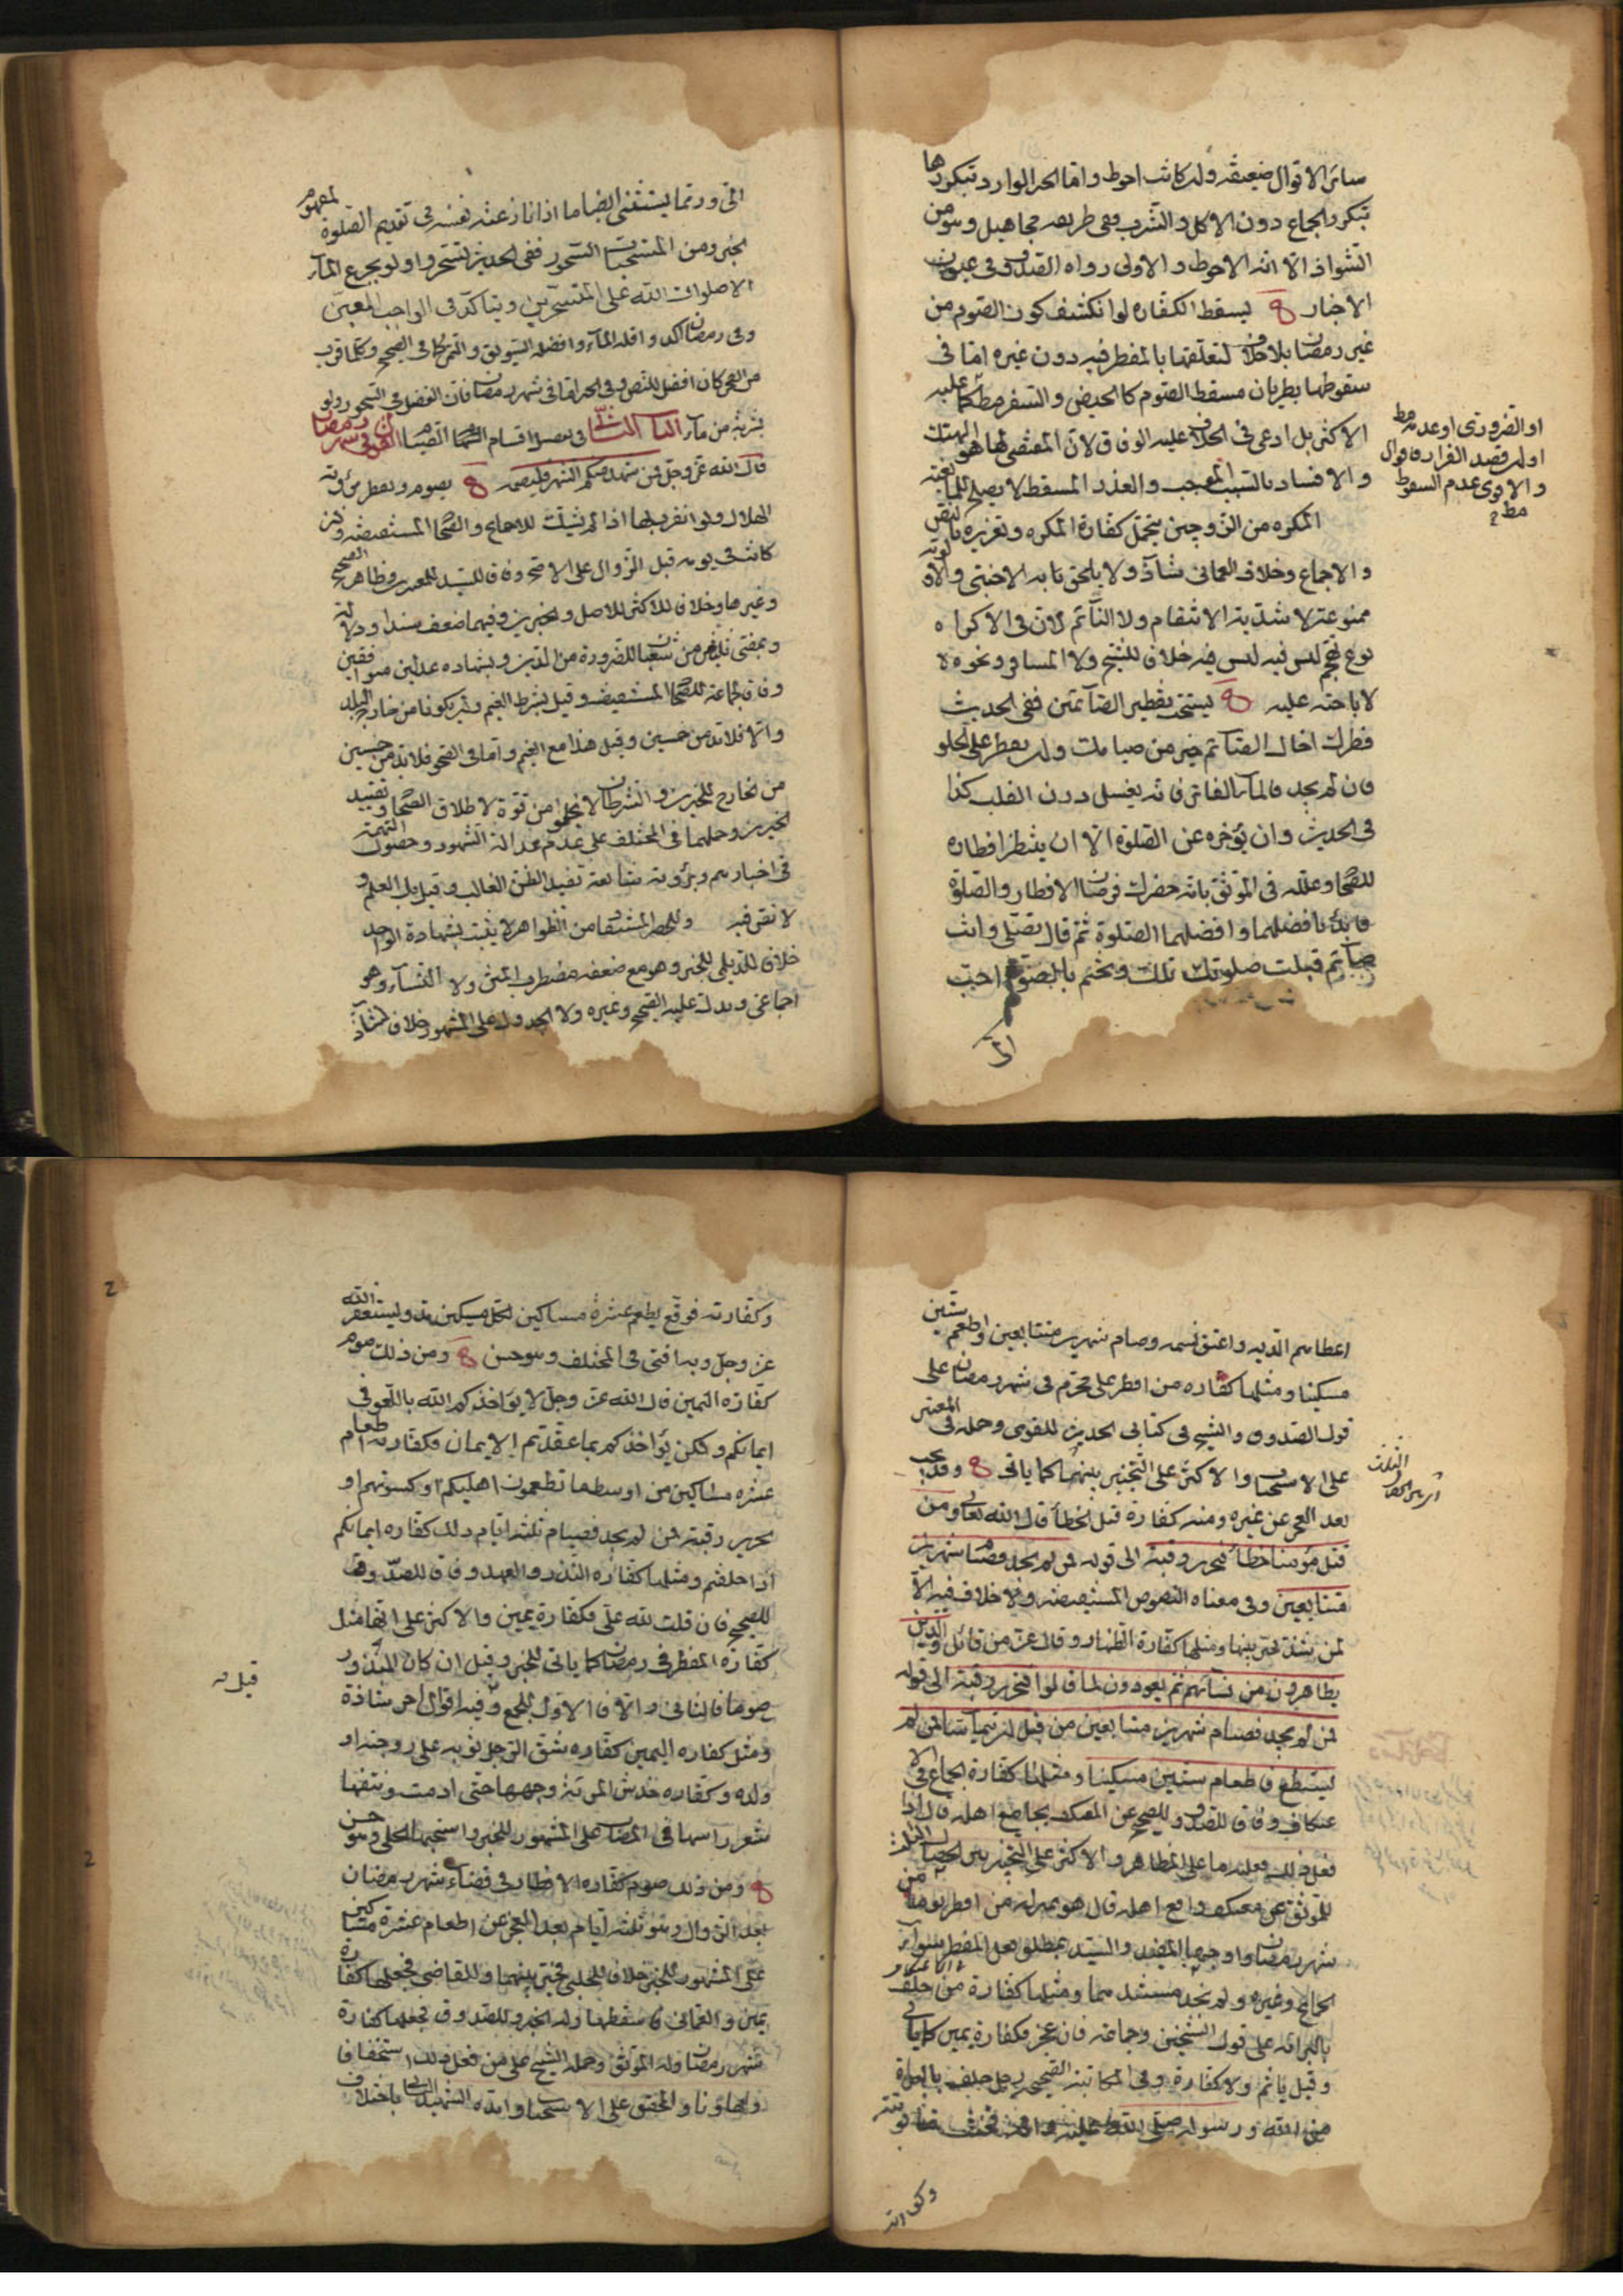 سائر الاقوال ضعيفة وان كانت احوط واما الخبر الوارد بتكررها
بتكرر الجماع دون الاكل والشرب ففى طريقه مجاهيل وهو من
الشواذ الا انه الاحوط والاولى رواه الصدوق فى عيون
الاخبار يسقط الكفارة لو انكشف كون الصوم من
غير رمضان بلا خلاف لتعلقها بالمفطر فيه دون غيره اما فى
سقوطها بطريان مسقط الصوم كالحيض والسفر مط كما عليه
الاكثر بل ادعى فى الخلاف عليه الوفاق لان المقتضى لها هو الهتك
والافساد بالسبب الموجب والعذر المسقط لا يصلح
او الضرورى او عدمه مط
او لم يقصد الفرار فاقوال
والاقوى عدم السقوط
مط
المكره من الزوجين يتحمل كفارة المكره وتعزيره بالنص
والاجماع وخلاف العمانى شاذ ولا يلحق به الاجنبى والاولوية
ممنوعة لا شدية الانتقام ولا النائم لان فى الاكراه
نوع تهجم ليس فيه خلاف للشيخ ولا المسافر ونحوه
لاباحته عليه يستحب تفطير الصائمين ففى الحديث
فطرك اخاك الصائم خير من صيامك وان يفطر على الحلو
فان لم يجد فالماء الفاتر فانه يغسل درن القلب كذا
فى الحديث وان يؤخره عن الصلوة الا ان ينتظر افطاره
للصحاح وعلله فى الموثق بانه حضرك فرضان الافطار والصلوة
فابدء بافضلهما وافضلهما الصلوة ثم قال تصلى وانت
صائم فتكتب صلوتك تلك وتختم بالصوم احب
الى
الى وربما يستثنى ايضا ما اذا نازعته نفسه فى تقديم الصلوة لمفهوم
الخبر ومن المستحبات السحور ففى الحديث تسحروا ولو بجرع الماء
الا صلوات الله على المتسحرين ويتاكد فى الواجب المعين
وفى رمضان اكد واقله الماء وافضله السويق والتمر كما فى الصحيح وكلما قرب
من الفجر كان افضل للنص وفى الخبر اما فى شهر رمضان فان الفضل فى السحور ولو
بشربة من ماء الباب الثانى فى اقسام الصيام القول فى شهر رمضان
قال الله عز وجل فمن شهد منكم الشهر فليصمه يصوم ويفطر برؤية
الهلال ولو انفرد بها اذا لم يثبت للاجماع والصحاح المستفيضة وان
كانت فى يومه قبل الزوال على الاصح وفاقا للسيد للمعتبرين وظاهر الصحيح
وغيرها وخلافا للاكثر للاصل والخبرين وفيهما ضعف سندا ودلالة
وبمضى ثلثين من شعبان للضرورة من الدين وبشهادة عدلين موافقين
وفاقا لجماعة للصحاح المستفيضة وقيل بشرط الغيم وان يكونا من خارج البلد
والا فلا بد من خمسين وقيل هذا مع الغيم واما فى الصحو فلا بد من خمسين
من الخارج للخبرين والشرطان لا يخلو من قوة لاطلاق الصحاح وتقييد
الخبرين وحملهما فى المختلف على عدم عدالة الشهود وحصول التهمة
فى اخبارهم وبرؤية شائعة تفيد الظن الغالب وقيل بل العلم و
لا نص فيه والظواهر لا يثبت بشهادة الواحد
خلافا للديلمى للخبر وهو مع ضعفه مضطرب المتن ولا النساء وهو
اجماعى ويدل عليه الصحيح وغيره ولا الجدول على المشهور خلافا لشاذ
اعطاهم الدية واعتق نسمة وصام شهرين متتابعين واطعم ستين
مسكينا ومثلها كفارة من افطر على محرم فى شهر رمضان على
قول الصدوق والشيخ فى كتابى الحديث للقوى وحمله فى المعتبر
على الاستحباب والاكثر على التخيير بينهما كما ياتى وقد يجب
الثلث
بعد العجز عن غيره ومنه كفارة قتل الخطأ قال الله تعالى ومن
قتل مؤمنا خطأ فتحرير رقبة الى قوله فمن لم يجد فصيام شهرين
متتابعين وفى معناه النصوص المستفيضة ولا خلاف فيه الا
لمن شذ تخير بينها ومثلها كفارة الظهار وقال عز من قائل والذين
يظاهرون من نسائهم ثم يعودون لما قالوا فتحرير رقبة الى قوله
فمن لم يجد فصيام شهرين متتابعين من قبل ان يتماسا فمن لم
يستطع فاطعام ستين مسكينا ومثلها كفارة الجماع فى الا
عتكاف وفاقا للصدوق وللصحيح عن المعتكف يجامع اهله قال اذا
فعل ذلك فعليه ما على المظاهر والاكثر على التخيير بين الخصال الثلث
للموثق عن معتكف واقع اهله قال هو بمنزلة من افطر يوما من
شهر رمضان واوجبها المفيد والسيد بمطلق فعل المفطر سواء
الجماع وغيره ولم نجد مستندهما ومثلها كفارة من حلف
بالبرائة على قول الشيخين وجماعة فان عجز فكفارة يمين كما ياتى
وقيل ياثم ولا كفارة وفى المكاتبة الصحيحة رجل حلف بالبرائة
من الله ورسوله صلى الله عليه واله فحنث ما توبته
وكفارته
وكفارته فوقع يطعم عشرة مساكين لكل مسكين مد ويستغفر الله
عز وجل وبه افتى فى المختلف وهو حسن ومن ذلك صوم
كفارة اليمين قال الله عز وجل لا يؤاخذكم الله باللغو فى
ايمانكم ولكن يؤاخذكم بما عقدتم الايمان فكفارته اطعام
عشرة مساكين من اوسط ما تطعمون اهليكم او كسوتهم او
تحرير رقبة فمن لم يجد فصيام ثلثة ايام ذلك كفارة ايمانكم
اذا حلفتم ومثلها كفارة النذر والعهد وفاقا للصدوق
للصحيح فان قلت لله على فكفارة يمين والاكثر على انها مثل
كفارة المفطر فى رمضان كما ياتى للخبر وقيل ان كان المنذور
صوما فالثانى والا فالاول للجمع وفيه اقوال اخر شاذة
قيل
ومثل كفارة اليمين كفارة شق الرجل ثوبه على زوجته او
ولده وكفارة خدش المرئة وجهها حتى ادمت ونتفها
شعر راسها فى المصاب على المشهور للخبر واستحبها الحلى وهو حسن
ومن ذلك صوم كفارة الافطار فى قضاء شهر رمضان
بعد الزوال وهو ثلثة ايام بعد العجز عن اطعام عشرة مساكين
على المشهور للخبر خلافا للحلبى فخير بينهما وللقاضى فجعلها كفارة
يمين والعمانى فاسقطها وله الخبر وللصدوق فجعلها كفارة
شهر رمضان وله الموثق وحمله الشيخ على من فعل ذلك استخفافا
وتهاونا والمحقق على الاستحباب وايده الشهيد الثانى باختلاف